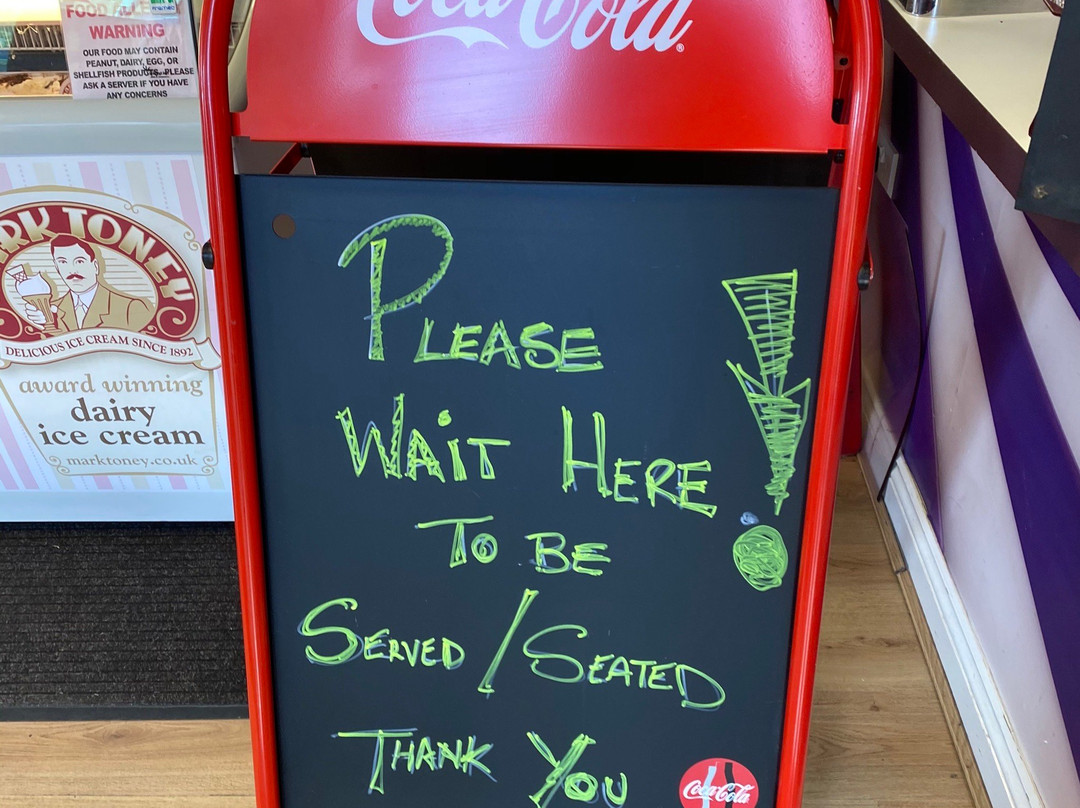 FOOD ALLE
WARNING
OUR FOOD MAY CONTAIN
PEANUT, DAIRY, EGG, OR
SHELLFISH PRODUCTS. PLEASE
ASK A SERVER IF YOU HAVE
ANY CONCERNS
Coca-Cola®
RK TONEY
DELICIOUS ICE CREAM SINCE 1892
award winning
dairy
ice cream
marktoney.co.uk
PLEASE
WAIT HERE
TO BE
SERVED / SEATED
THANK YOU
!
Coca-Cola